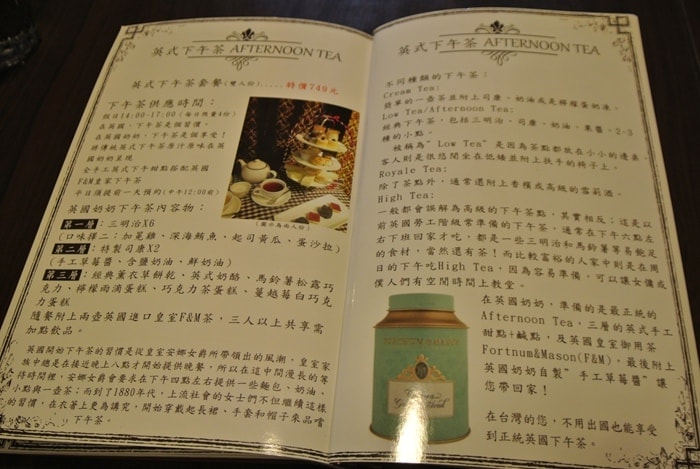 英式下午茶 AFTERNOON TEA
英式下午茶套餐(雙人份).....特價749元
下午茶供應時間：
假日14:00-17:00(每日限量4份)
在英國，下午茶是個習慣。
在英國奶奶，下午茶是個享受！
將傳統英式下午茶原汁原味在英
國奶奶呈現
全手工英式下午甜點搭配英國
F&M皇家下午茶
平日須提前一天預約(中午12:00前)
(圖示為兩人份)
英國奶奶下午茶內容物：
第一層：三明治X6
(口味擇二：加冕雞，深海鮪魚，起司黃瓜、蛋沙拉)
第二層：特製司康X2
(手工草莓醬、含鹽奶油，鮮奶油)
第三層：經典薰衣草餅乾、英式奶酪、馬鈴薯松露巧
克力、檸檬雨滴蛋糕、巧克力茶蛋糕、蔓越莓白巧克
力蛋糕
隨餐附上兩壺英國進口皇室F&M茶，三人以上共享需
加點飲品。
英國開始下午茶的習慣是從皇室安娜女爵所帶領出的風潮，皇室家
族中總是在接近晚上八點才開始提供晚餐，所以在這中間漫長的等
待時間裡，安娜女爵會要求在下午四點左右提供一些麵包、奶油、
小點與一壺茶；而到了1880年代，上流社會的女士們不但繼續這樣
的習慣，在衣著上更為講究，開始穿戴起長裙、手套和帽子來品嚐
下午茶。
英式下午茶 AFTERNOON TEA
不同種類的下午茶：
Cream Tea:
簡單的一壺茶並附上司康、奶油或是檸檬蛋奶凍。
Low Tea/Afternoon Tea:
經典下午茶，包括三明治，司康、奶油、果醬、2-3
種的小點。
被稱為"Low Tea"是因為茶點都放在小小的邊桌，
客人則是很悠閒坐在低矮並附上扶手的椅子上。
Royale Tea:
除了茶點外，通常還附上香檳或高級的雪莉酒。
High Tea:
一般都會誤解為高級的下午茶點，其實相反；這是以
前英國勞工階級常準備的下午茶，通常在下午六點左
右下班回家才吃，都是一些三明治和馬鈴薯等易飽足
的食材，當然還有茶！而比較富裕的人家中則是在周
日的下午吃High Tea，因為容易準備，可以讓女傭或
僕人們有空閒時間上教堂。
在英國奶奶，準備的是最正統的
Afternoon Tea，三層的英式手工
甜點+鹹點，及英國皇室御用茶
Fortnum&Mason(F&M)，最後附上
英國奶奶自製"手工草莓醬"讓
您帶回家！
在台灣的您，不用出國也能享受
到正統英國下午茶。